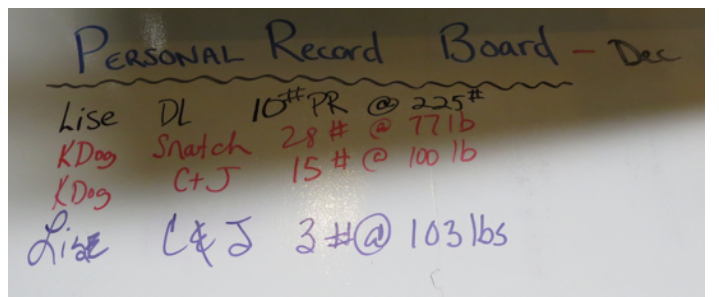 Personal Record Board - Dec
Lise DL 10# PR @ 225#
KDog Snatch 28# @ 77lb
KDog C+J 15# @ 100 lb
Lise C&J 3#@ 103 lbs